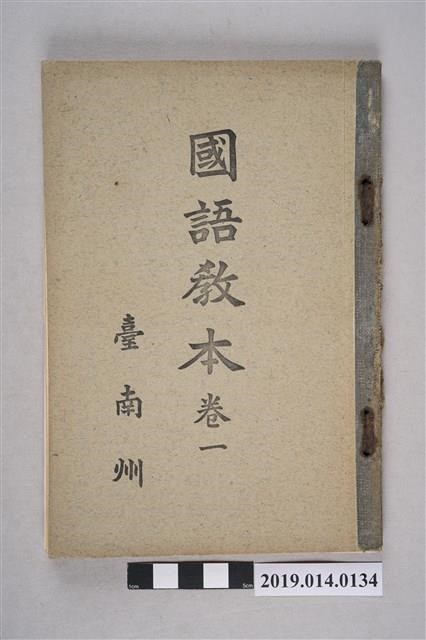 國語教本 卷一
臺南州
5cm
5cm
2019.014.0134